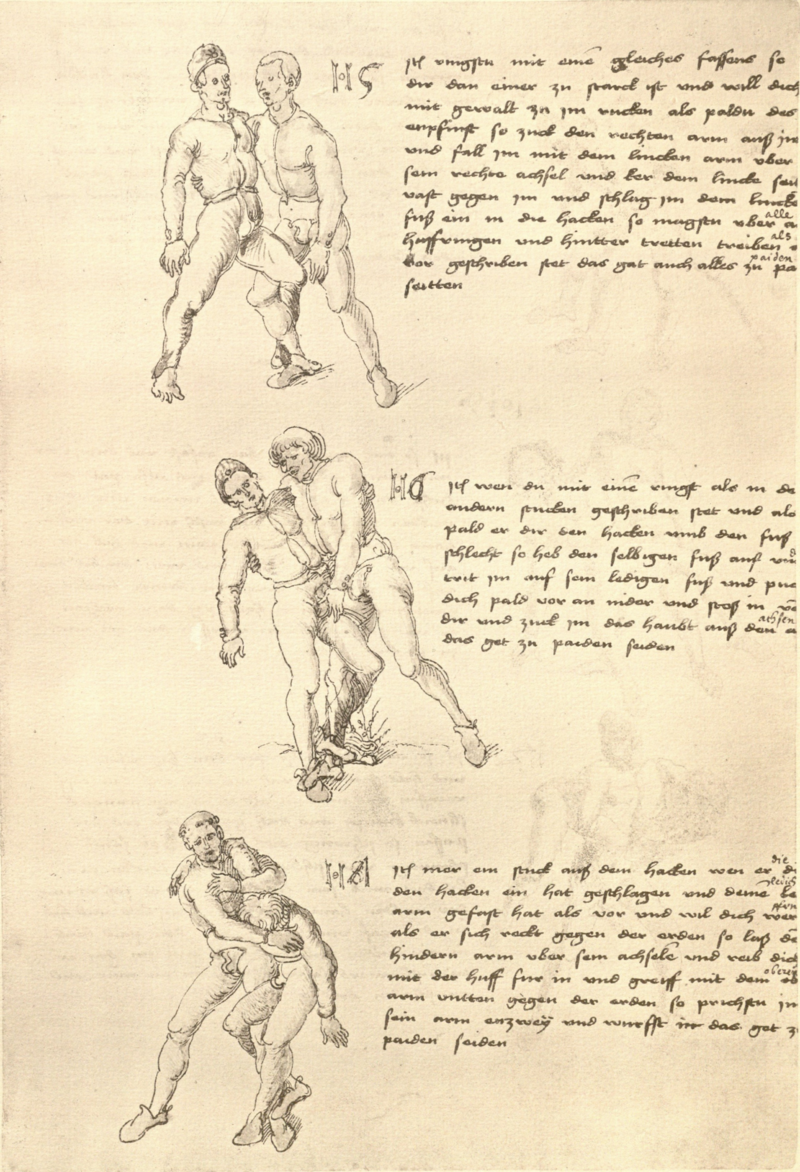 H 5
Itm ringstu mit eine gleiches fassens so
dir dan einer zu starck ist und will dich
mit gewalt zu im rucken als paldu des
enpfinst so zuck den rechten arm auß im
und fall im mit dem lincken arm uber
sein rechte achsel und ker dem lincke seit
vast gegen im und schlag im dem lincke
fuß ein in die hacken so magstu uber alle
huffringen und hintter tretten treiben als
vor geschriben stet das gat auch alles zu paiden
seitten
H 6
Itm wen du mit eine ringst als in de
andern stucken geschriben stet und also
pald er dir den hacken umb den fuß
schlecht so heb den selbigen fuß auf und
trit im auf sein ledigen fuß und puc
dich pald vor an nider und stoß in von
dir und zuck im das haubt auß den achsen
das get zu paiden seiden
H 8
Itm mer ein stuck auß dem hacken wen er dir die
den hacken ein hat geschlagen und deine leich
arm gefast hat als vor und wil dich werfn
als er sich reckt gegen der erden so laß de
hindern arm uber sein achsele und reib dich
mit der huff fur in und greiff mit dem obern
arm untten gegen der erden so prichstu im
sein arm enzwey und wurfst in das get zu
paiden seiden